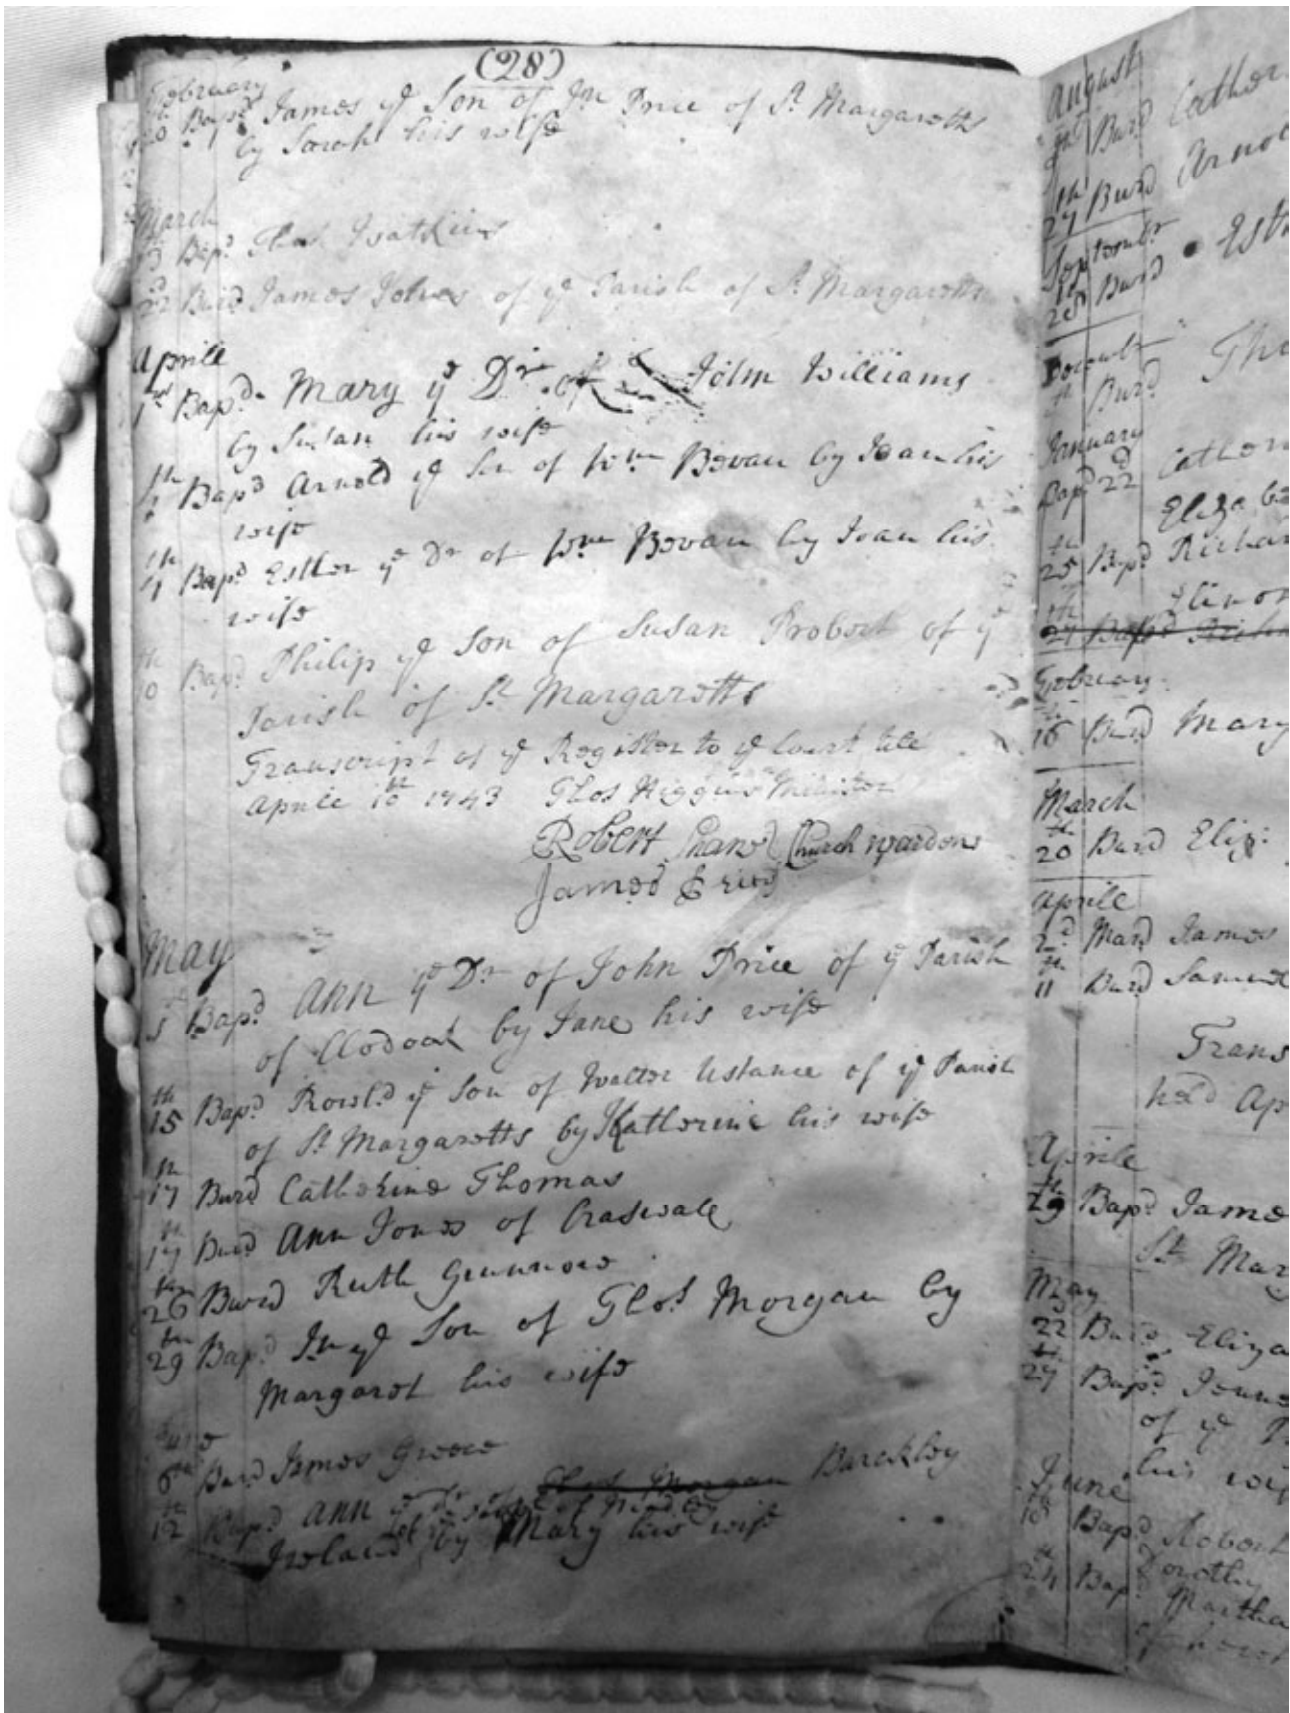 (28)
February
20 Bap.d James ye Son of Jn Price of St. Margaretts
by Sarah his wife
March
13 Bap.d Thos Watkins
22 Burd James Jones of ye Parish of St. Margaretts
Aprill
1st Bap.d Mary ye Dr of John Williams
by Susan his wife
th Bap.d Arnold ye Son of Wm Bevan by Joan his
wife
th Bap.d Esther ye Dr of Wm Bevan by Joan his
wife
10th Bap.d Philip ye Son of Susan Probert of ye
Parish of St. Margaretts
Transcript of ye Register to ye Court till
Aprill 10th 1743 Thos Higgins Minister
Robert Church wardens
James
May
5th Bap.d Ann ye Dr of John Price of ye Parish
of Clodock by Jane his wife
15th Bap.d Rowld ye Son of Walter Ustance of ye Parish
of St. Margaretts by Katherine his wife
17th Burd Catherine Thomas
17th Burd Ann Jones of Craswall
26th Burd Ruth
29th Bap.d Jn ye Son of Thos Morgan by
Margaret his wife
June
6th Burd James Greece
12th Bap.d Ann ye Dr of Thos Morgan Barckley
Ireland by Mary his wife
August
th Burd Cather
27th Burd Arnol
September
28 Burd Esth
December
th Burd Tho
January
Bap.d 22d Cathor
Eliza
25th Bap.d Richar
Elinor
27th Bap.d Richa
February
16 Burd Mary
March
20th Burd Eliz:
Aprille
2d Mard James
11th Burd Samuel
Trans
held Ap
Aprile
29th Bap.d Jame
St. Mar
May
22 Burd Eliza
27th Bap.d
of ye P
his wif
June
18 Bap.d Robert
Dorothy
24th Bap.d Martha